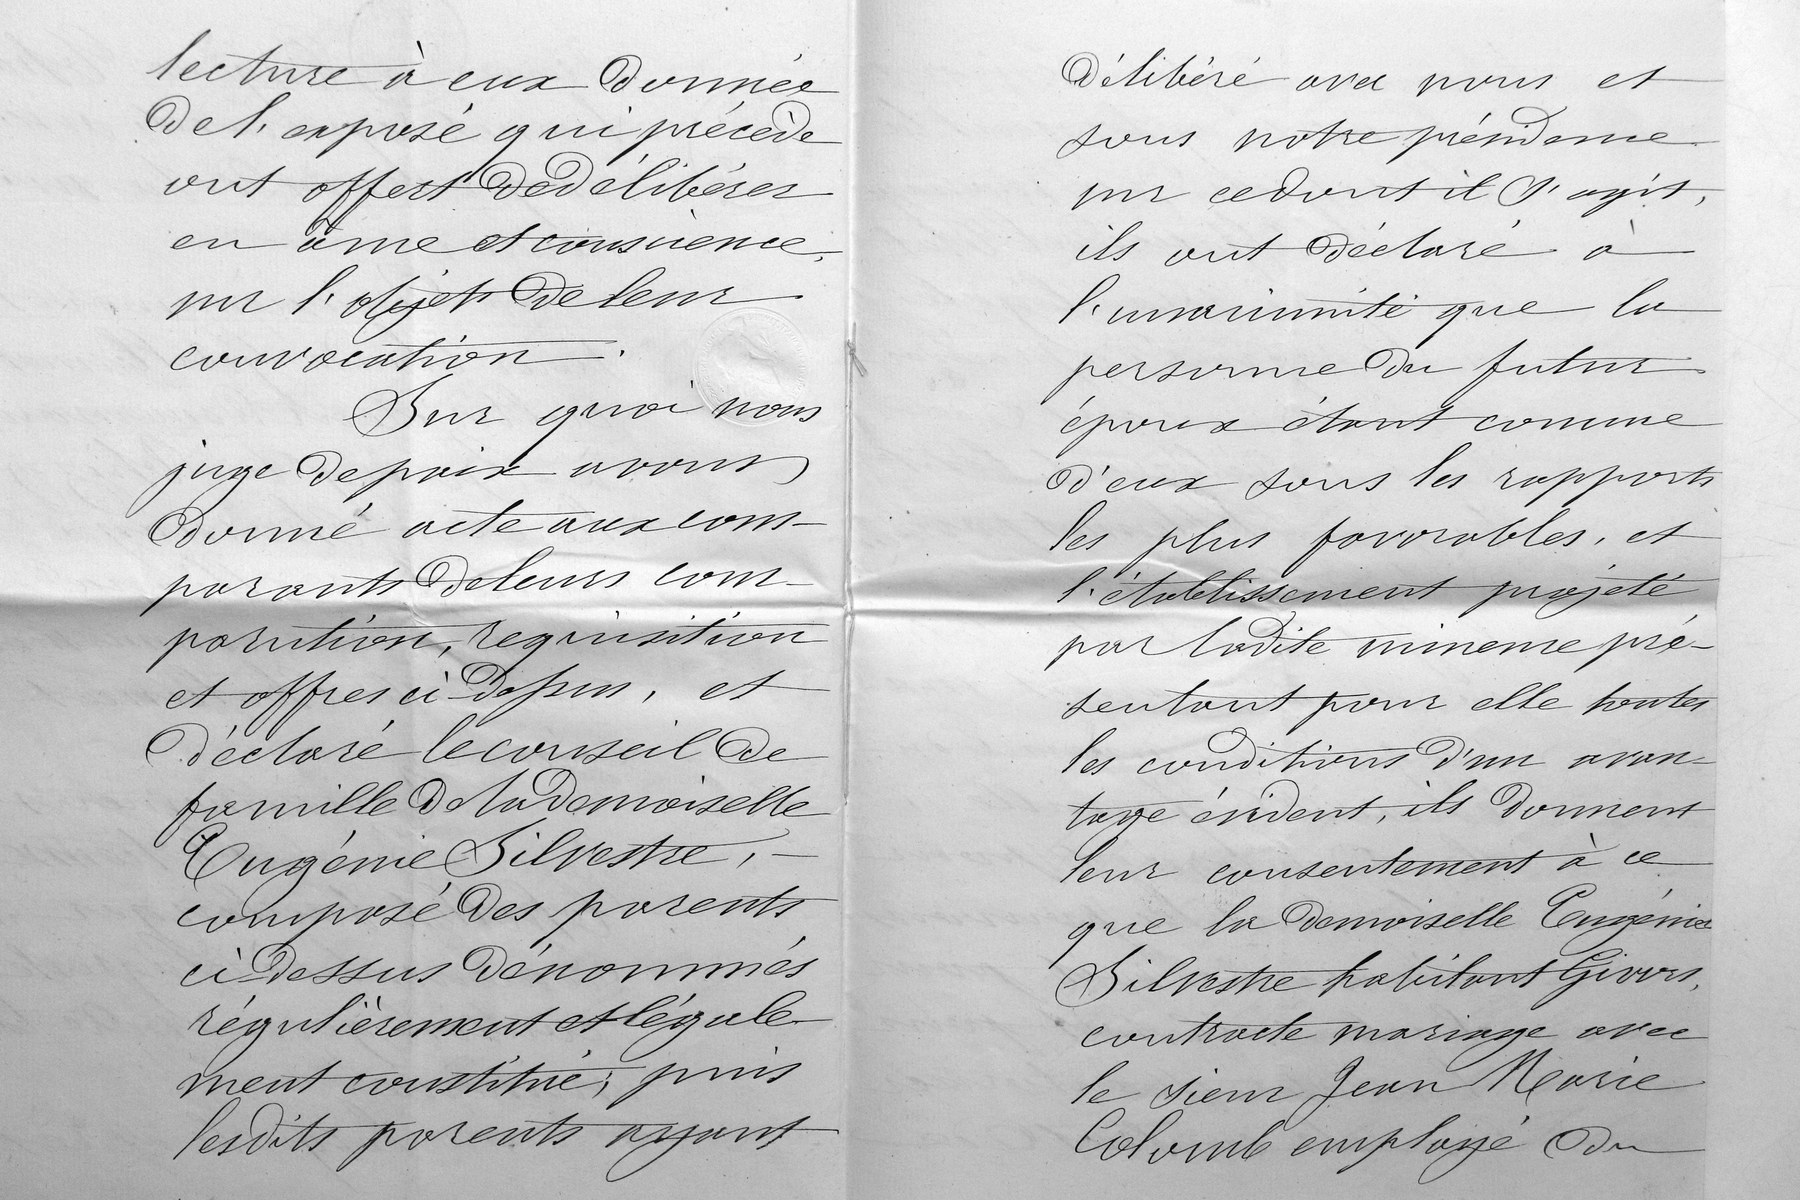 lecture à eux donnée
de l'exposé qui précède
ont offert de délibérer
en âme et conscience,
sur l'objet de leur
convocation.
Sur quoi nous
juge de paix avons
donné acte aux com-
parants de leurs com-
parution, requisition
et offres ci-dessus, et
déclaré le conseil de
famille de la demoiselle
Eugénie Silvestre, -
composé des parents
ci-dessus dénommés
régulièrement et légale-
ment constitué; puis
lesdits parents ayant
délibéré avec nous et
sous notre présidence
sur ce dont il s'agit,
ils ont déclaré à
l'unanimité que la
personne du futur
époux étant connue
d'eux sous les rapports
les plus favorables, et
l'établissement projeté
par ladite mineure pré-
sentant pour elle toutes
les conditions d'un avan-
tage évident, ils donnent
leur consentement à ce
que la demoiselle Eugénie
Silvestre habitant Givors,
contracte mariage avec
le sieur Jean Marie
Colomb employé du